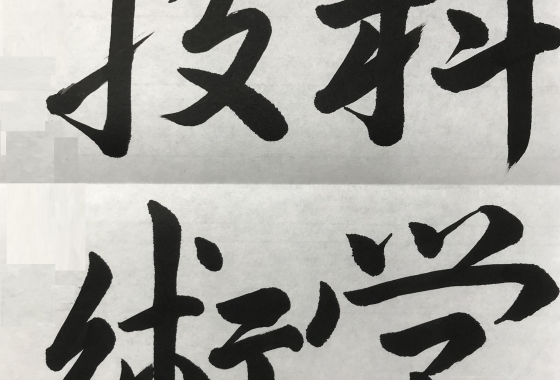 科学
技術